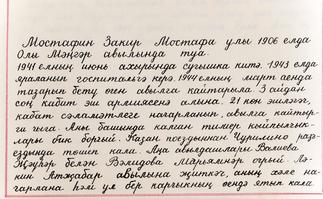 Мостафин Закир Мостафа улы 1906 елда
Олы Мәңгәр авылында туа.
1941 елның июнь ахырында сугышка китә. 1943 елда
яраланып госпитальгә керә. 1944 елның март аенда
тазарып бетү өчен авылга кайтарыла. 3 айдан
соң кабат эш армиясенә алына. 21 көн эшләгәч,
кабат сәламәтлеге начарланып, авылга кайтыр-
га чыга. Аны башында калган тимер кыйпылчык-
лары бик борчый. Казан поездыннан Чурилино раз-
ездында төшеп кала. Аңа авылдашлары Валиева
Җәүһәр белән Вәлидова Мәрьямнәр очрый. Лә-
кин Атҗабар авылына җиткәч, аның хәле на-
чарлана һәм ул бер каргыкның өендә ятып кала.